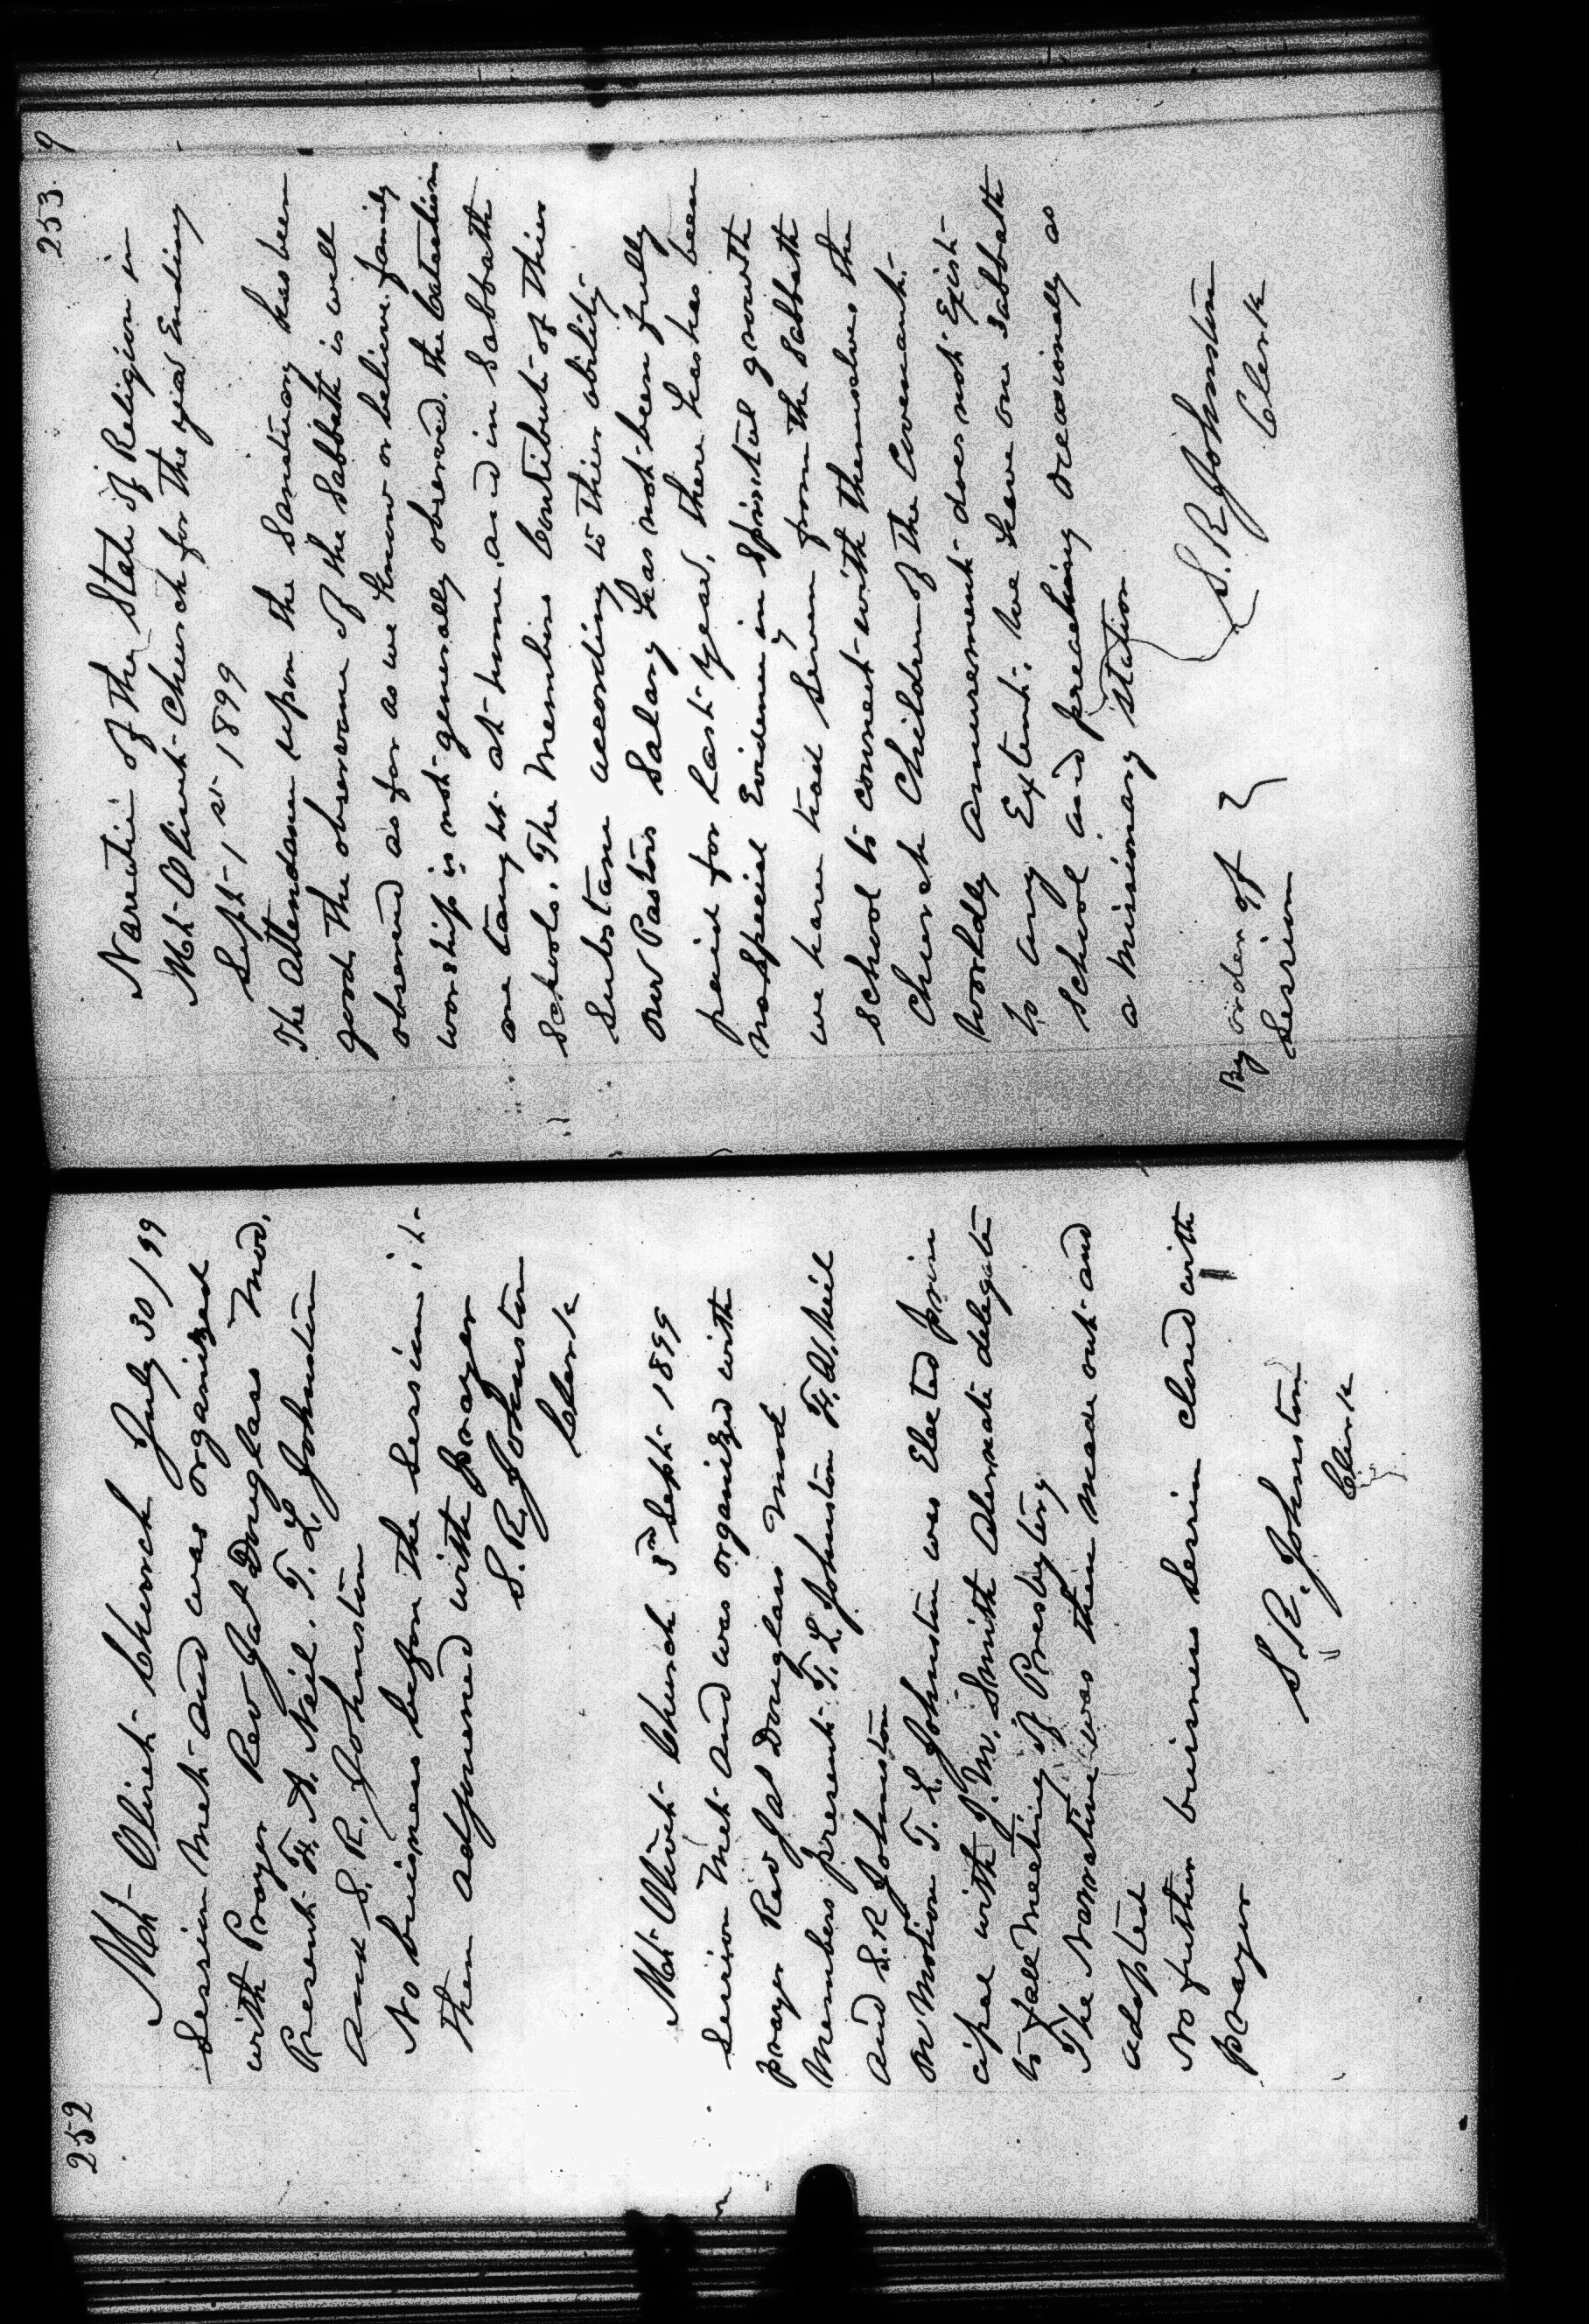 252
Mt- Olivet- Church July 30/99
Session Met- and was organized
with Prayer Rev Jas Douglass Mod.
Present. H. A. Neil. T. L. Johnston
and S. R. Johnston
No business before the Session it-
then adjourned with prayer
S. R. Johnston
Clerk
Mt- Olivet- Church 3rd Sept- 1899
Session Met- and was organized with
prayer Rev Jas Douglass Mod
Members present- T. L. Johnston H. A. Neil
and S. R Johnston
On Motion T. L. Johnston was Elected prin
cipal with J. M. Smith Alernate delegate
to fall Meeting of Presbytery
The Narrative was then made out- and
adopted
No futher business Session closed with
prayer
S. R. Johnston
Clerk
253 9
Narrative of the State of Religion in
Mt- Olivet- Church for the year Ending
Sept- 1st- 1899
The Attendance upon the Sanctuary has been
good. the observance of the Sabbath is well
observed as far as we know or believe. family
worship is not- generally observed. the Catechism
are taught- at- home. and in Sabbath
Schools. The Members Contribute of thier
Substance according to thier ability-
Our Pastors Salary has not- been fully
paid for Last- year. there has has been
no Special Evidence in Spirital growth
we have had Seven from the Sabbath
School to connect- with themselves the
Church Children of the Covenant-
Worldly Amusement- does not- Exist-
to any Extent-. we have one Sabbath
School and preaching occasionally as
a Missionary Station
By order of
Session
S. R Johnston
Clerk